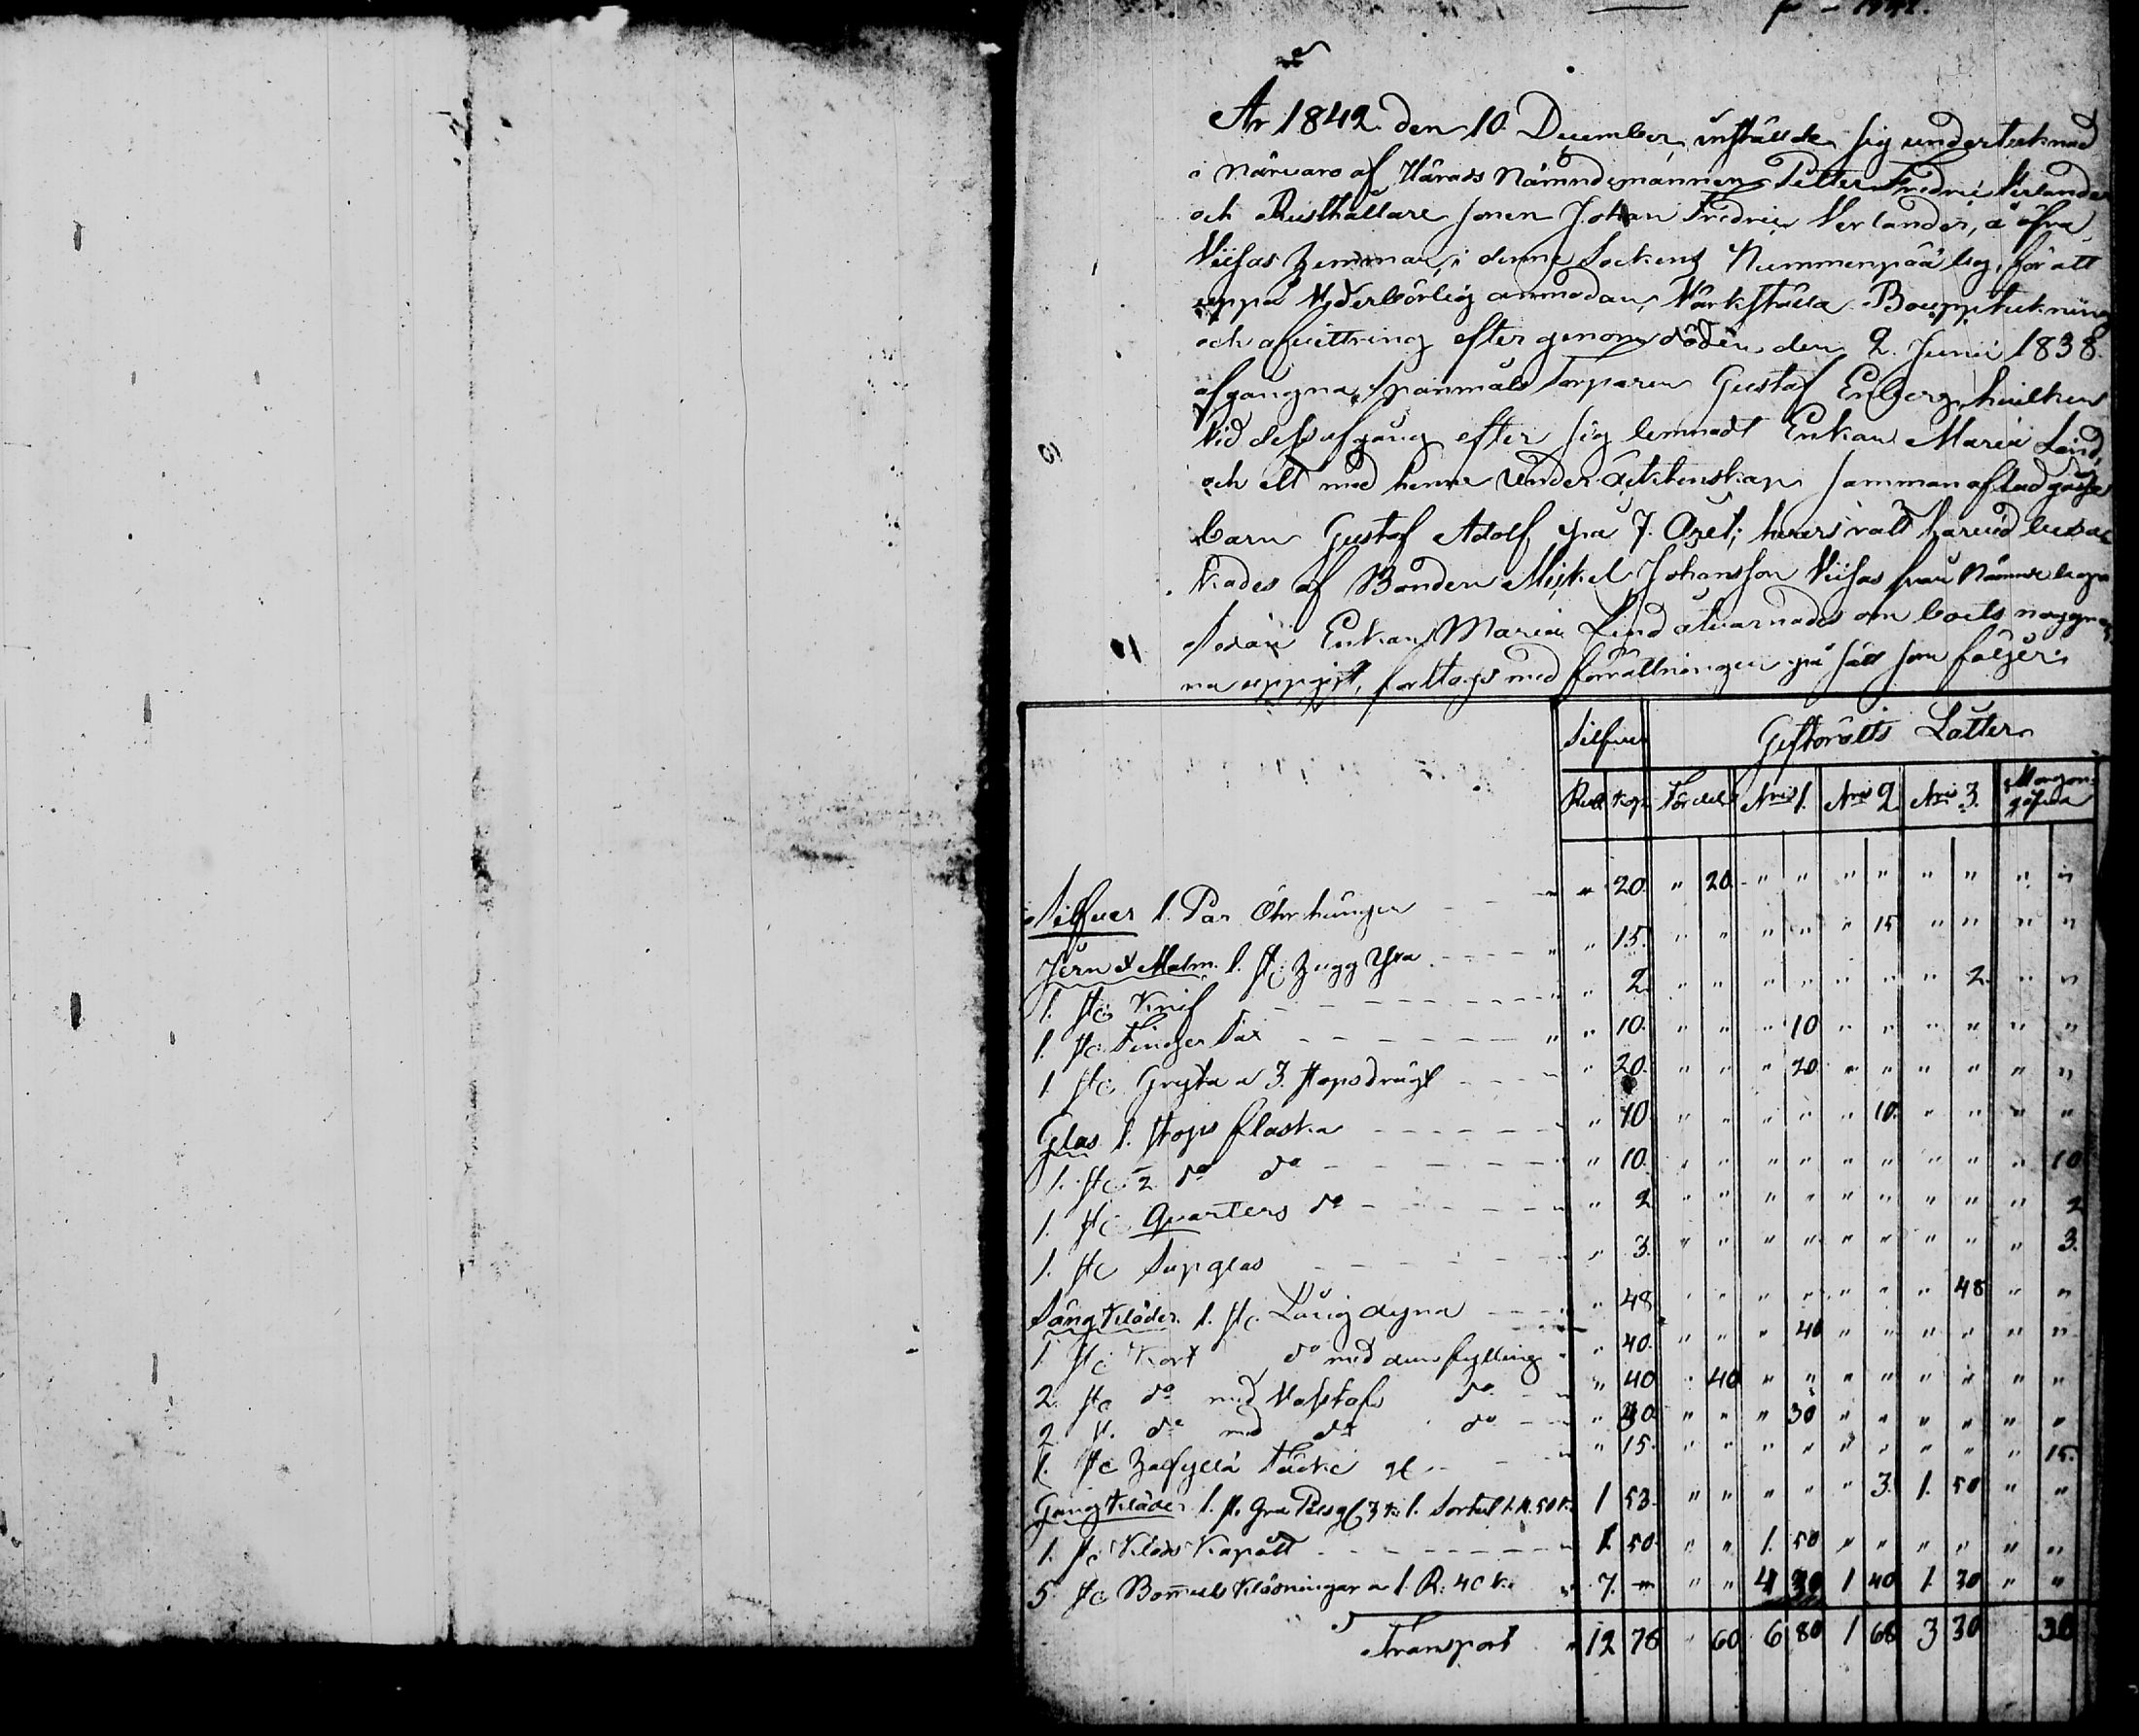 År 1842 den 10 December inställde sig undertecknad
i närvaro af Härads Nämndemannen Petter Fredric Verlander
och Rusthållare sonen Johan Fredric Verlander, å öfra
Viisas hemman, i denne Sockens Nummenpää by, för att
uppå vederbörlig anmodan, värkställa Bouppteckning
och afvittring efter genom döden den 2 Junii 1838
afgångna Spanmåls Torparen Gustaf Enberg, hvilken
vid dess afgång efter sig lemnadt Enkan Maria Lind,
och ett med henne under äcktenskap sammanaflad gosse
barn Gustaf Adolf på 7 Året; hvars rätt härvid bevac
kades af Bonden Mickel Johansson Viisas från Nämnde by
Sedan Enkan Maria Lind atvarnades om boets noggran
na uppgift, forttogs med förrättningen på sätt som följer:
Silfver Giftorätts Lotter
Rub Kop Fördel Nris 1. Nris 2 Nris 3. Morgon gåfva
Silfver 1. Par Örhängen " 20. " 20 " " " " " " " "
Jern & Malm. 1. st. hugg Yxa " 15. " " " " " 15 " " " "
1. st. Knif " 2. " " " " " " " 2. " "
1. st. Finger Sax " 10. " " " 10 " " " " " "
1. st. Gryta a 3. stops drägt " 20. " " " 20 " " " " " "
Glas 1. stops flaska " 10 " " " " " 10. " " " "
1. st. ½ do do " 10. " " " " " " " " " 10
1. st. Quarters do " 2 " " " " " " " " " 2
1. st. Supglas " 3. " " " " " " " " " 3.
Sängkläder. 1. st. Lång dyna " 48 " " " " " " " 48 " "
1. st. Kort do med dun fylling " 40. " " " 40 " " " " " "
2. st. do med Vasstofs do " 40 " 40 " " " " " " " "
2. st. do med do do " 30 " " " 30 " " " " " "
1. st. täcke gl " 15. " " " " " " " " " 15.
Gångkläder. 1. st. Grå gl 3 k. 1. R. 50 k. 1 53. " " " " " 3. 1. 50 " "
1. st. Klädes Kapått 1. 50. " " 1. 50 " " " " " "
5 st. Bomuls Klädningar a 1. R. 40 k. 7. " " " 4 20 1 40 1. 30 " "
Transport 12 78 " 60 6 80 1 68 3 30 30